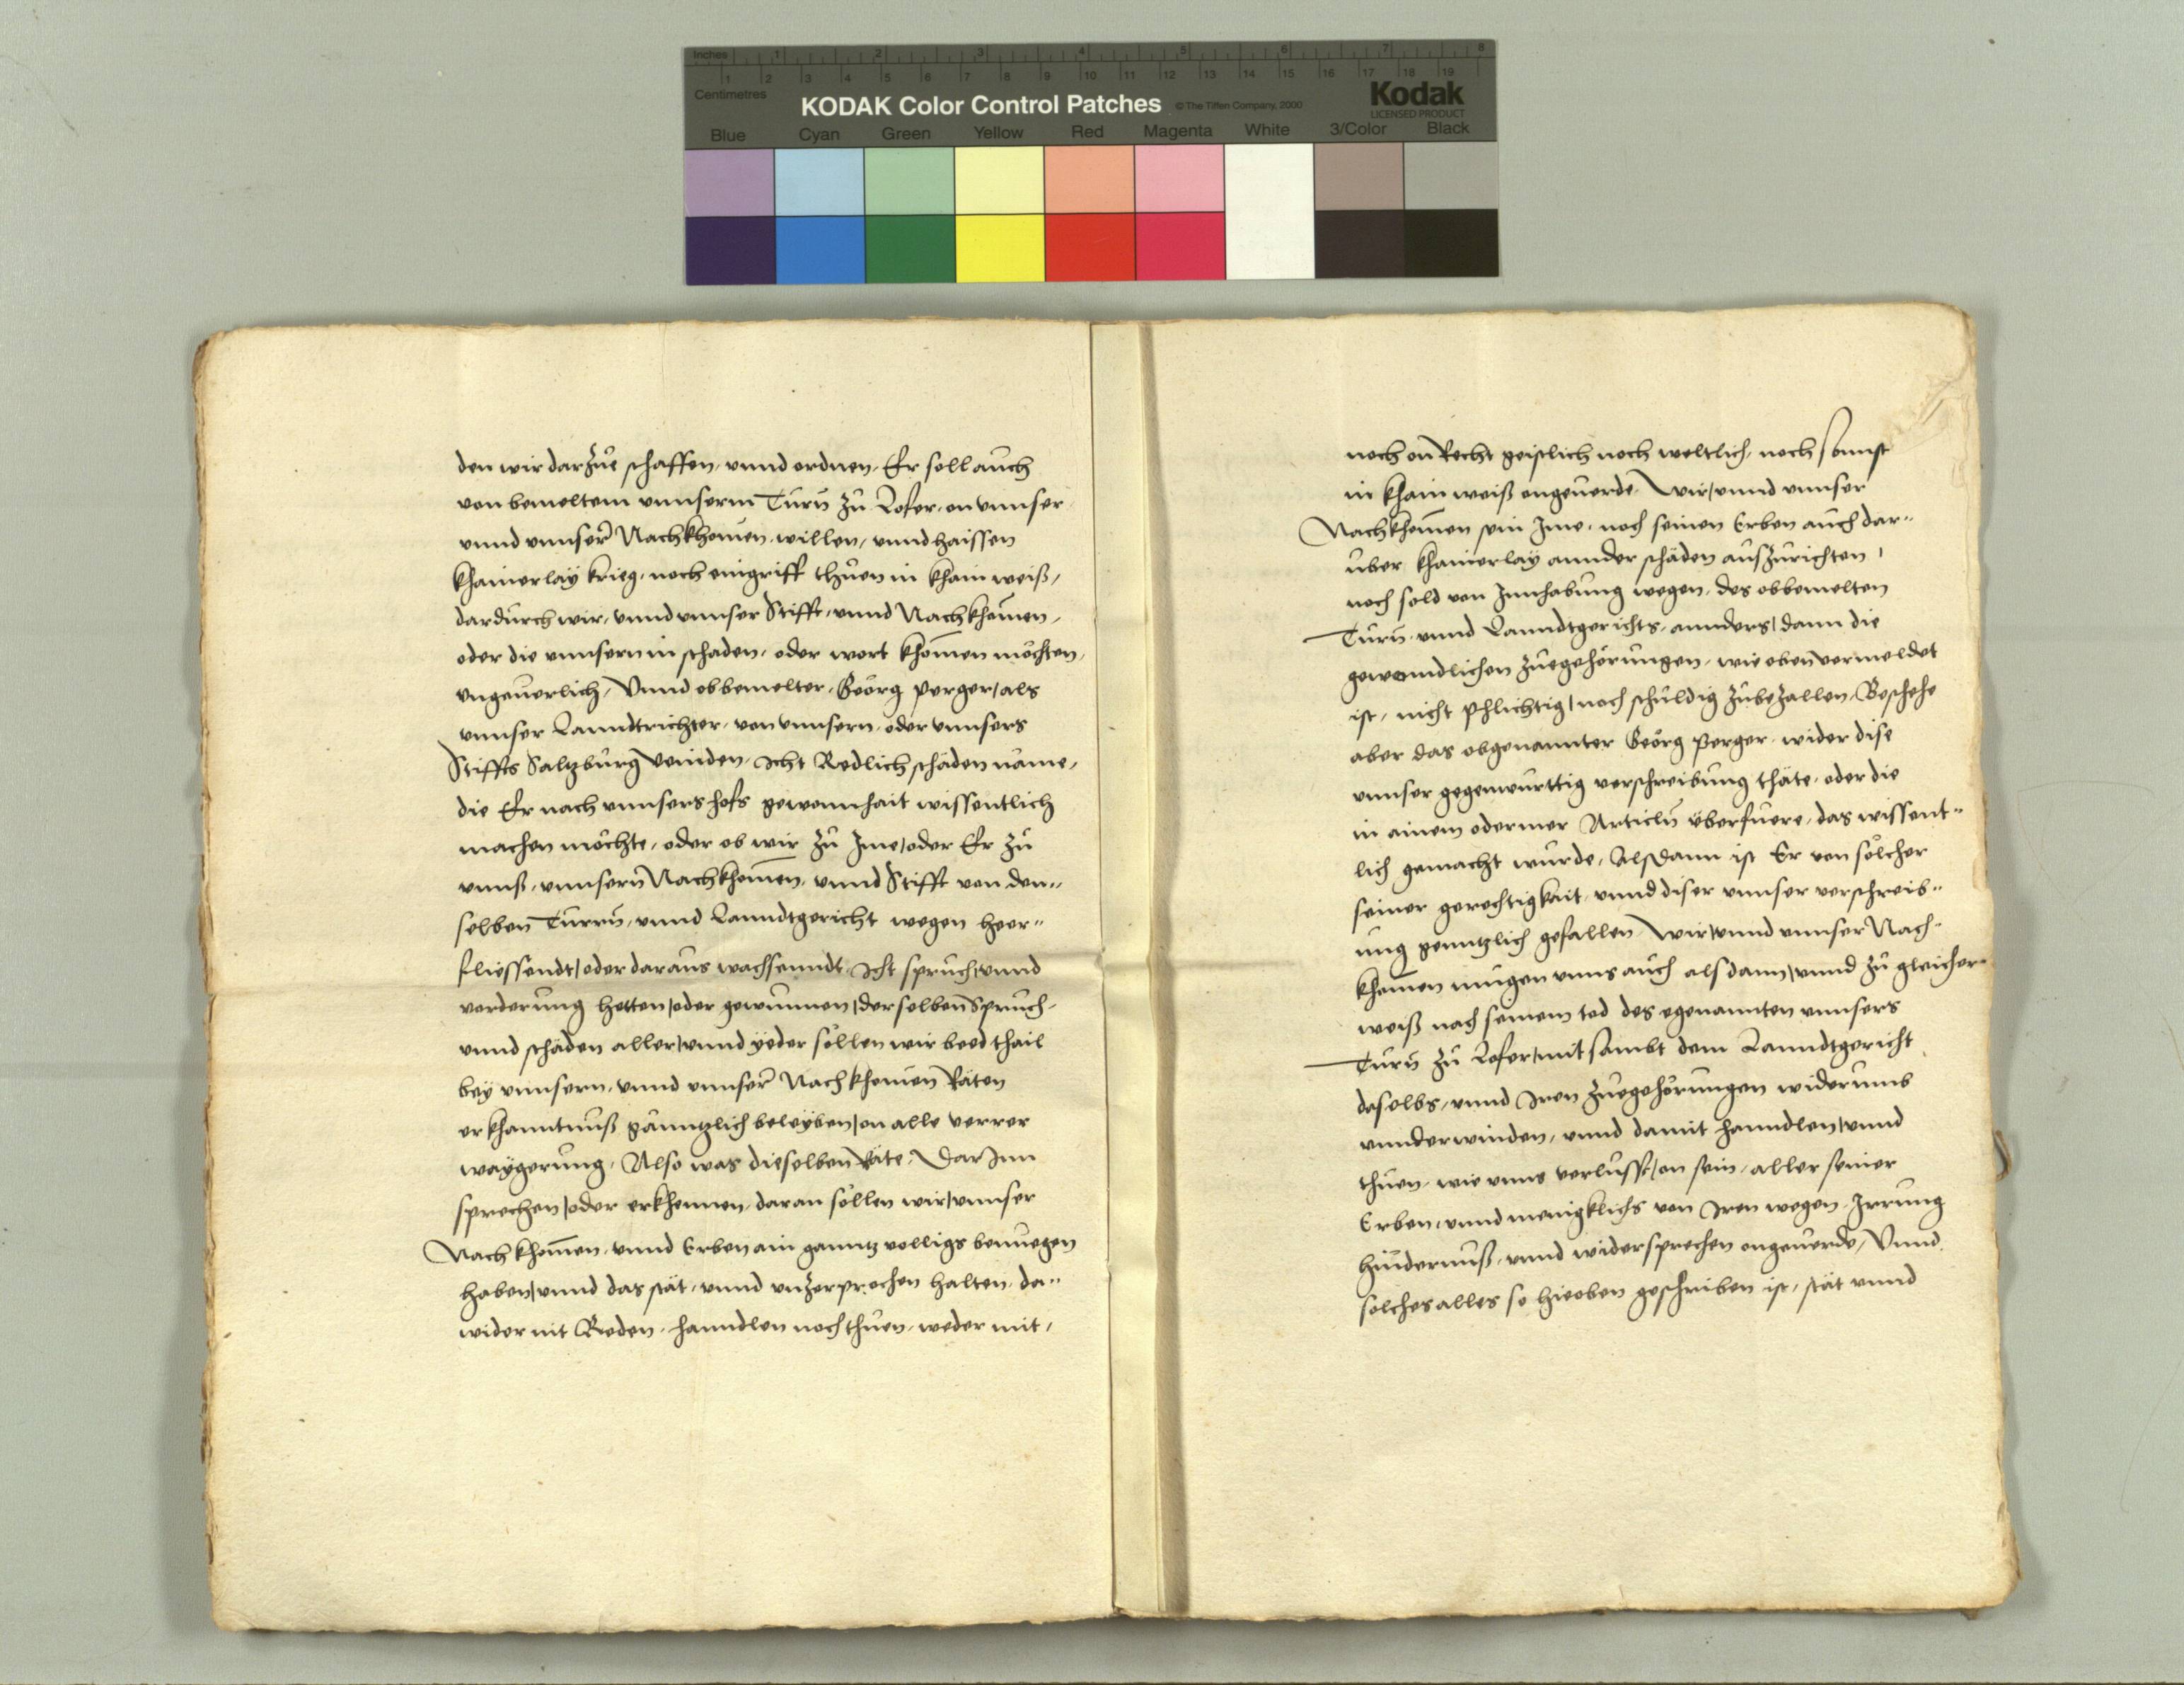 Inches 1 2 3 4 5 6 7 8
1 2 3 4 5 6 7 8 9 10 11 12 13 14 15 16 17 18 19
Centimetres
KODAK Color Control Patches © The Tiffen Company, 2000 Kodak
LICENSED PRODUCT
Blue Cyan Green Yellow Red Magenta White 3/Color Black
den wir darzue schaffen, vnnd ordnen, Er soll auch
von bemeltem vnnserm Turn̄ zu Lofer, on vnnser
vnnd vnnser̄ Nachkhomēn, willen, vnnd haissen
khainerlaÿ krieg, noch eingriff thuen in khain weiß,
dardurch wir, vnnd vnnser Stifft, vnnd Nachkhomēn,
oder die vnnsern in schaden, oder wort khom̄en möchten,
vngeuerlich, Vnnd obbemelter, Georg perger, als
vnnser Lanndtrichter, von vnnsern, oder vnnsers
Stiffts Saltzburg veinden, icht Redlich schäden näme,
die Er nach vnnsers hofs gewonnhait wissentlich
machen möchte, oder ob wir zu Ime, oder Er zu
vnnß, vnnsern̄ Nachkhom̄en, vnnd Stifft von den-
selben Turrn̄, vnnd Lanndtgericht wegen heer-
fliessendt, oder daraus wachsenndt, Icht spruch, vnnd
vorderung hetten, oder gewunnen, der selben Spruch,
vnnd schäden aller, vnnd ÿeder sollen wir beed thail
beÿ vnnsern, vnnd vnnser̄ Nachkhomēn Räten
erkhanntnuß gänntzlich beleÿben, on alle verrer
waÿgerung, Also was dieselben Räte, Dar Inn
sprechen, oder erkhennen, daran sollen wir, vnnser
Nachkhom̄en, vnnd Erben ain ganntz volligs benuegen
haben, vnnd das stät, vnnd vnzerprochen halten, da-
wider nit Reden, hanndlen noch thuen, weder mit,
noch on Recht geistlich noch weltlich, noch sonnst
in khain weiß ongeuerde, Wir, vnnd vnnser
Nachkhom̄en sein Ime, noch seinen Erben auch dar-
uber khainerlaÿ annder schäden auszurichten,
noch sold von Innhabung wegen, des obbemelten
Turn̄, vnnd Lanndtgerichts, annders, dann die
gewondlichen zuegehörungen, wie oben vermeldet
ist, nicht phlichtig, noch schuldig zubezallen, Beschehe
aber das obgenannter Georg Perger, wider dise
vnnser gegenwurttig verschreibung thäte, oder die
in ainem oder mer Articln̄ überfuere, das wissent-
lich gemacht wurde, Alsdann ist Er von solcher
seiner gerechtigkait, vnnd diser vnnser verschreib-
ung genntzlich gefallen, Wir, vnnd vnnser Nach-
khom̄en mugen vnns auch alsdann, vnnd zu gleicher
weiß nach seinem tod des egenannten vnnsers
Turn̄ zu Lofer, mit sambt dem Lanndtgericht
daselbs, vnnd Iren zuegehörungen widerumb
vnnderwinden, vnnd damit hanndlen, vnnd
thuen, wie vnns verlusst, on sein, aller seiner
Erben, vnnd menigklichs von Iren wegen, Irrung
hindernuß, vnnd widersprechen ongeuerde, Vnnd
solches alles so hieoben geschriben ist, stät vnnd